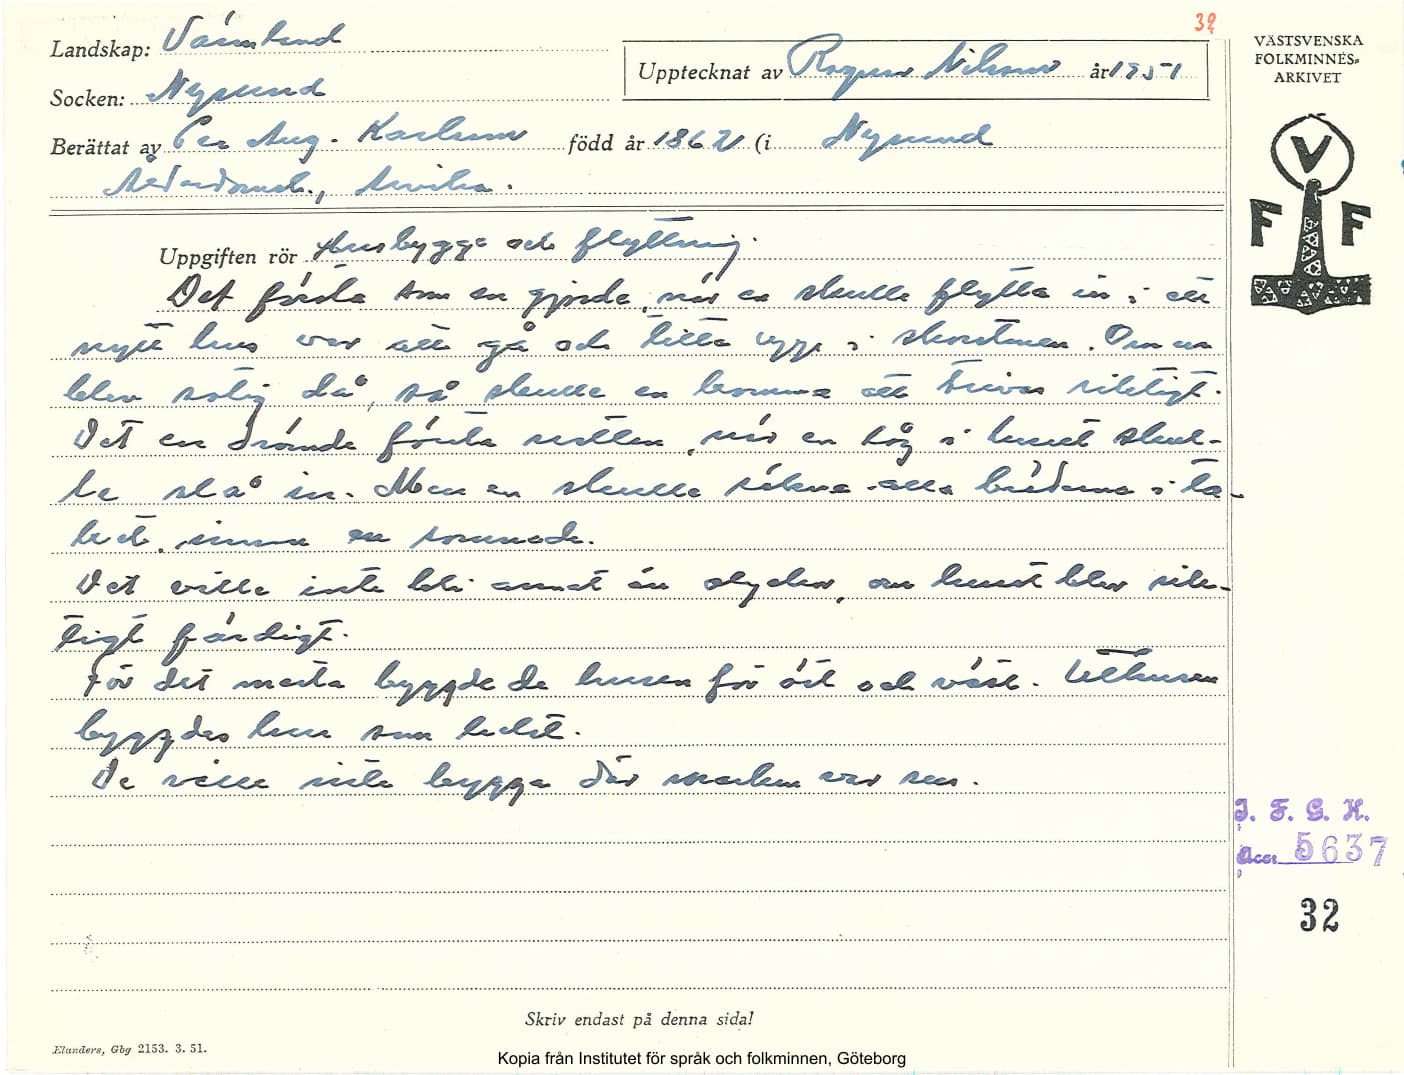 32
Landskap: Värmland
Upptecknat av Ragnar Nilsson år 1951
VÄSTSVENSKA
FOLKMINNES-
ARKIVET
Socken: Nysund
Berättat av Per Aug. Karlsson född år 1862 (i Nysund
Ålderdomsh., Arvika.
V
F F
Uppgiften rör Husbygge och flyttning.
Det första som en gjorde, när en skulle flytta in i ett
nytt hus var att gå och titta upp i skorstenen. Om en
blev sotig då, så skulle en komma att trivas riktigt.
Det en drömde första natten, när en låg i huset skul-
le slå in. Men en skulle räkna alla bräderna i ta-
ket, innan en somnade.
Det ville inte bli annat än olyckor, om huset blev rik-
tigt färdigt.
För det mesta byggde de husen för öst och väst. Uthusen
byggdes hur som helst.
De ville inte bygga där marken var sur.
I. F. G. H.
Acc. 5637
32
Skriv endast på denna sida!
Elanders, Gbg 2153. 3. 51.
Kopia från Institutet för språk och folkminnen, Göteborg